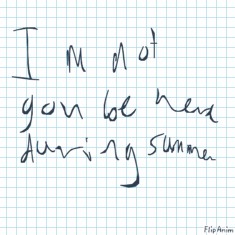 I m not
gon be here
during summer
FlipAnim